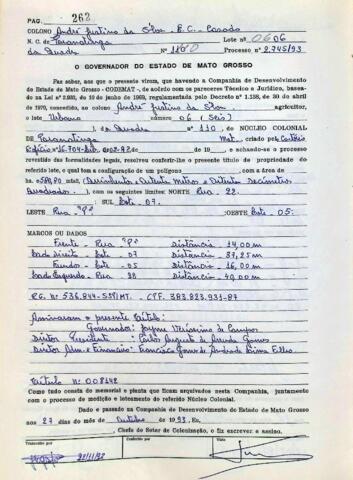 PAG. 262
COLONO André Justino da Silva - E.C. Casado
N. C. de Paranatinga Lote nº 0606
da Quadra Nº 110 Processo nº 2.745/93
O GOVERNADOR DO ESTADO DE MATO GROSSO
Faz saber, aos que o presente virem, que havendo a Companhia de Desenvolvimento
do Estado de Mato Grosso - CODEMAT -, de acôrdo com os pareceres Técnico e Jurídico, basea-
da na Lei nº 2.933, de 10 de junho de 1969, regulamentada pelo Decreto nº 1.138, de 30 de abril
de 1970, concedido, ao colono André Justino da Silva agricultor,
o lote Urbano nº 06 (Seis)
da Quadra nº 110, do NÚCLEO COLONIAL
de Paranatinga Mat., criado por Cartório
e achando-se o processo
revestido das formalidades legais, resolveu conferir-lhe o presente título de propriedade
do referido lote, o qual tem a configuração de um polígono com a área de
Quadrados ), com os seguintes limites: NORTE Rua - 22.
SUL Lote - 07.
LESTE Rua "P" OESTE Lote - 05.
MARCOS OU DADOS
Frente - Rua "P" Distância 14,00 m
Lado Direito - Lote - 07 Distância 37,25 m
Fundos - Lote - 05 Distância 16,00 m
Lado Esquerdo - Rua - 22 Distância 40,00 m
RG. Nº 536.844-SSP/MT. - CPF. 383.823.931-87
Assinaram o presente título:
Governador: Jayme Veríssimo de Campos
Diretor Presidente: Carlos Augusto de Arruda Gomes
Diretor Adm. e Financeiro: Francisco Gomes de Andrade Lima Filho
Título Nº 008142
Como tudo consta do memorial e planta que ficam arquivados nesta Companhia, juntamente
com o processo de medição e loteamento do referido Núcleo Colonial.
Dado e passado na Companhia de Desenvolvimento do Estado de Mato Grosso
aos 27 dias do mês de Outubro de 1993.
, Chefe do Setor de Colonização, o fiz escrever e assino.
Transcrito por
Conferido por
Visto